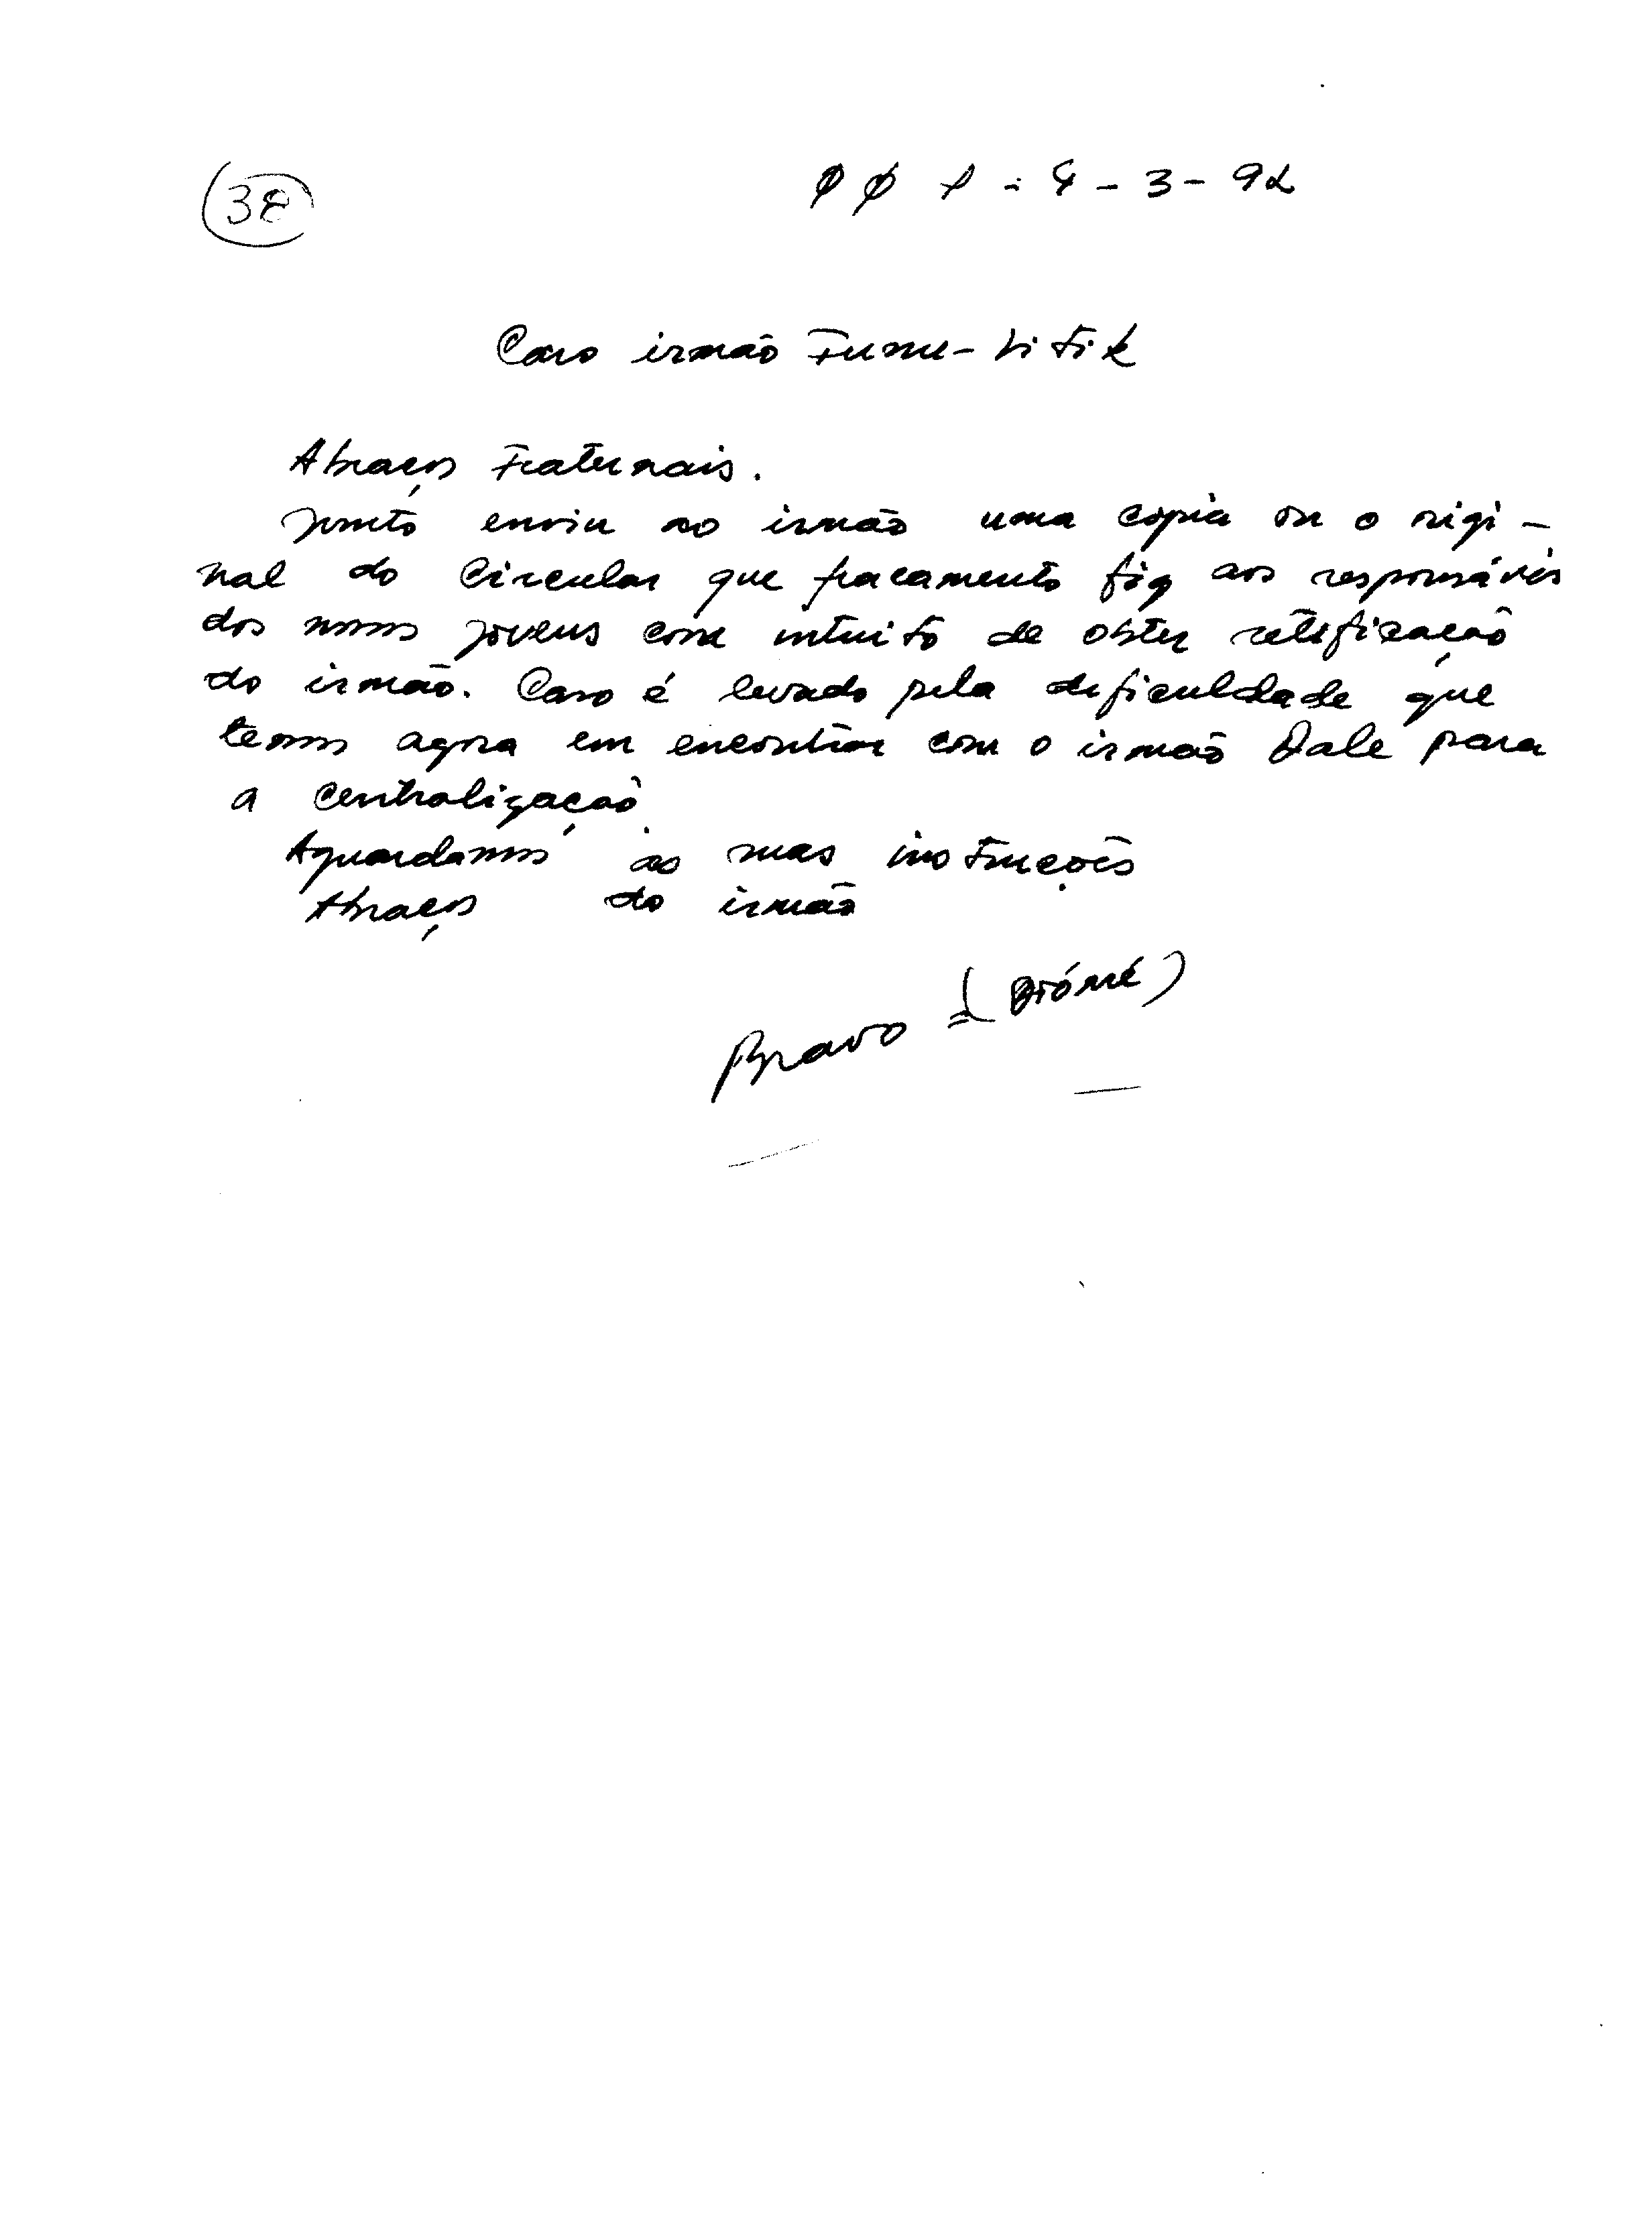 38
4-3-92
Caro irmão
Abraços Fraternais.
Junto enviu ao irmão uma copia ou o rigi-
nal do Circular que fracamente fiz aos responsáveis
dos nossos jovens com intuito de obter retificação
do irmão. Caso é levado pela dificuldade que
temos agora em encontrar com o irmão Dale para
a centralização.
Aguardamos as suas instruções
Abraços do irmão
Bravo